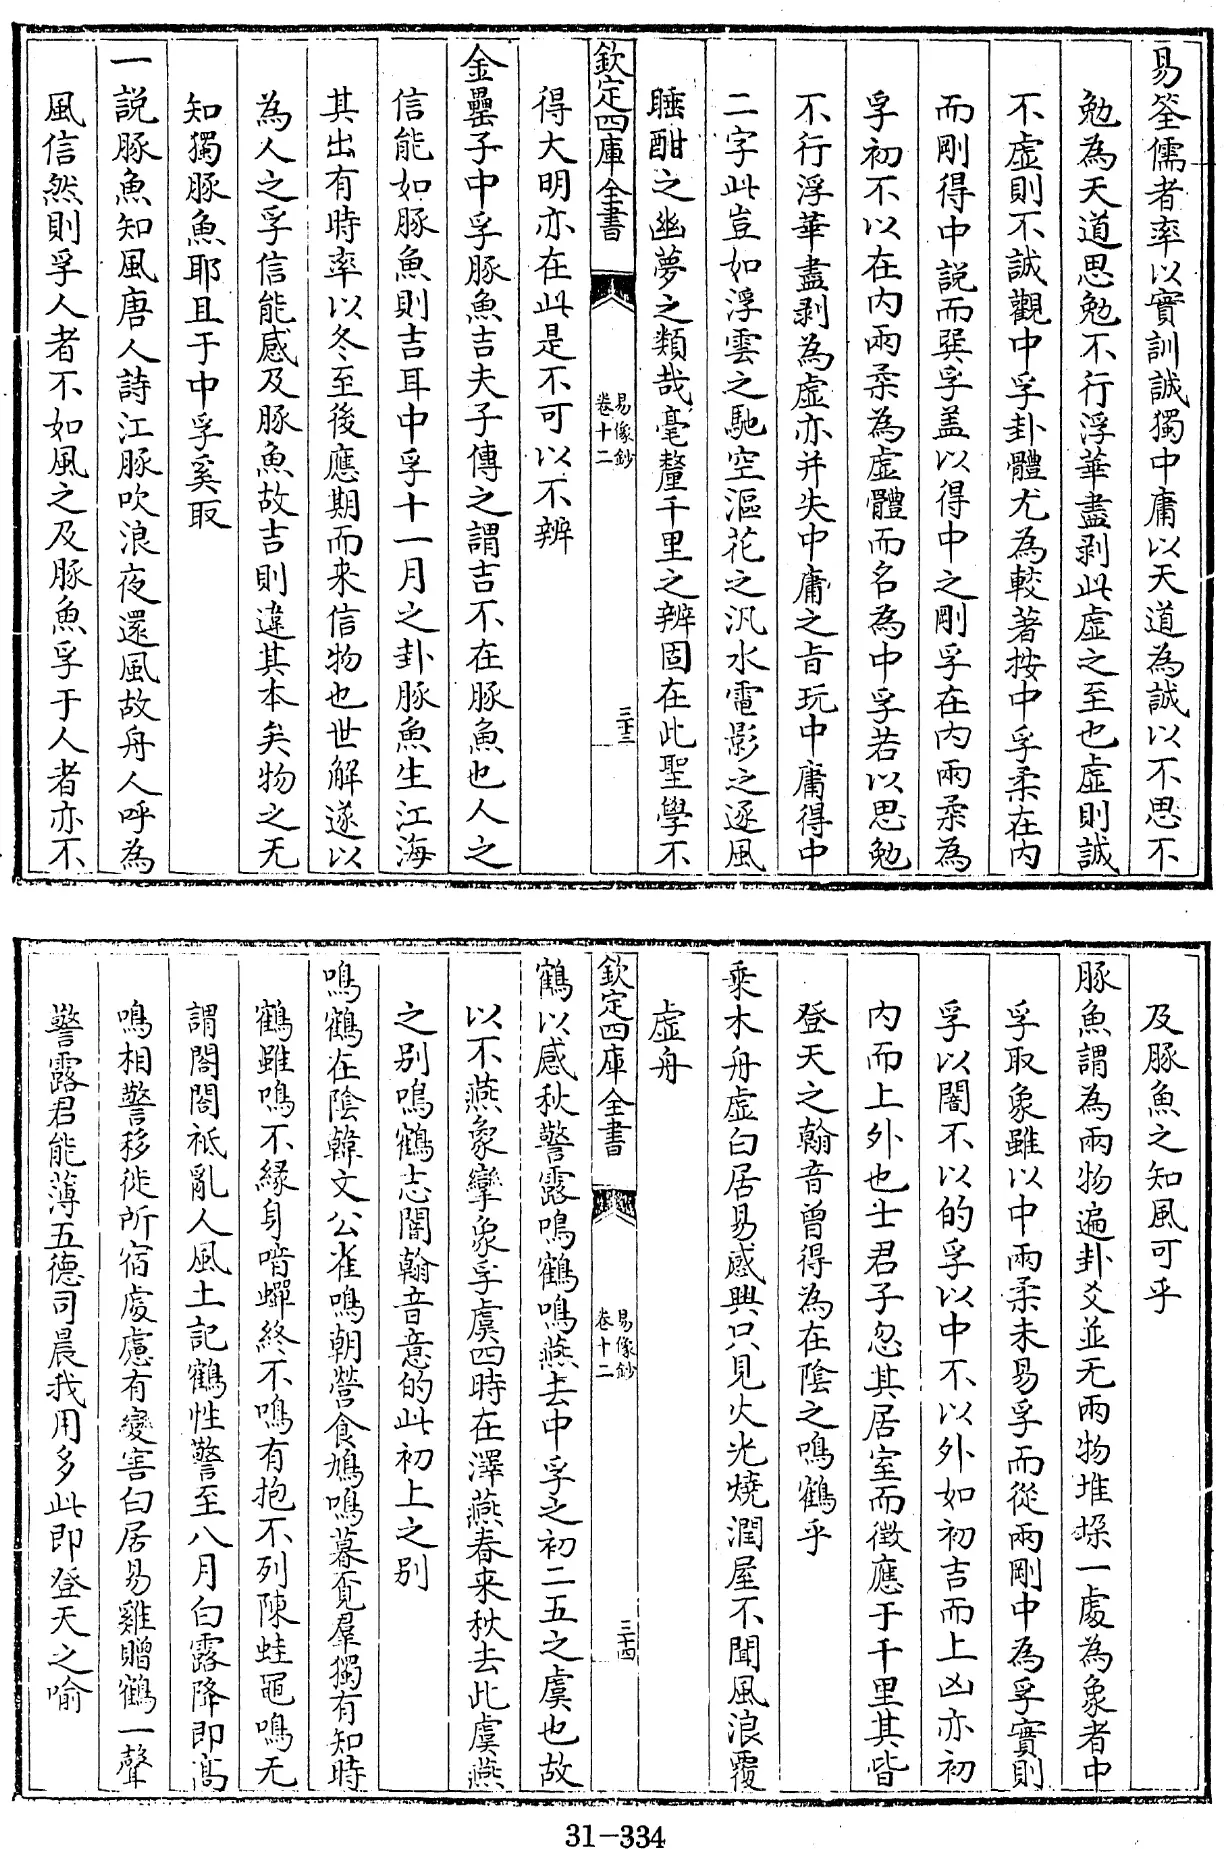 易筌儒者率以實訓誠獨中庸以天道為誠以不思不
勉為天道思勉不行浮華盡剥此虛之至也虛則誠
不虛則不誠觀中孚卦體尤為較著按中孚柔在内
而剛得中説而巽孚盖以得中之剛孚在内兩柔為
孚初不以在内兩柔為虛體而名為中孚若以思勉
不行浮華盡剥為虛亦并失中庸之旨玩中庸得中
二字此豈如浮雲之馳空漚花之汎水電影之逐風
睡酣之幽夢之類哉毫釐千里之辨固在此聖學不
欽定四庫全書
易像鈔
卷十二
三十三
得大明亦在此是不可以不辨
金罍子中孚豚魚吉夫子傳之謂吉不在豚魚也人之
信能如豚魚則吉耳中孚十一月之卦豚魚生江海
其出有時率以冬至後應期而来信物也世解遂以
為人之孚信能感及豚魚故吉則違其本矣物之无
知獨豚魚耶且于中孚奚取
一説豚魚知風唐人詩江豚吹浪夜還風故舟人呼為
風信然則孚人者不如風之及豚魚孚于人者亦不
及豚魚之知風可乎
豚魚謂為兩物遍卦爻並无兩物堆垜一處為象者中
孚取象雖以中兩柔未易孚而從兩剛中為孚實則
孚以闇不以的孚以中不以外如初吉而上凶亦初
内而上外也士君子忽其居室而徴應于千里其皆
登天之翰音曾得為在陰之鳴鶴乎
乘木舟虛白居易感興只見火光燒潤屋不聞風浪覆
虛舟
欽定四庫全書
易像鈔
卷十二
三十四
鶴以感秋警露鳴鶴鳴燕去中孚之初二五之虞也故
以不燕象攣象孚虞四時在澤燕春来秋去此虞燕
之别鳴鶴志闇翰音意的此初上之别
鳴鶴在陰韓文公雀鳴朝營食鳩鳴暮覓羣獨有知時
鶴雖鳴不緣身喑蟬終不鳴有抱不列陳蛙黽鳴无
謂閤閤祗亂人風土記鶴性警至八月白露降即高
鳴相警移徙所宿處慮有變害白居易雞贈鶴一聲
警露君能薄五德司晨我用多此即登天之喻
31-334